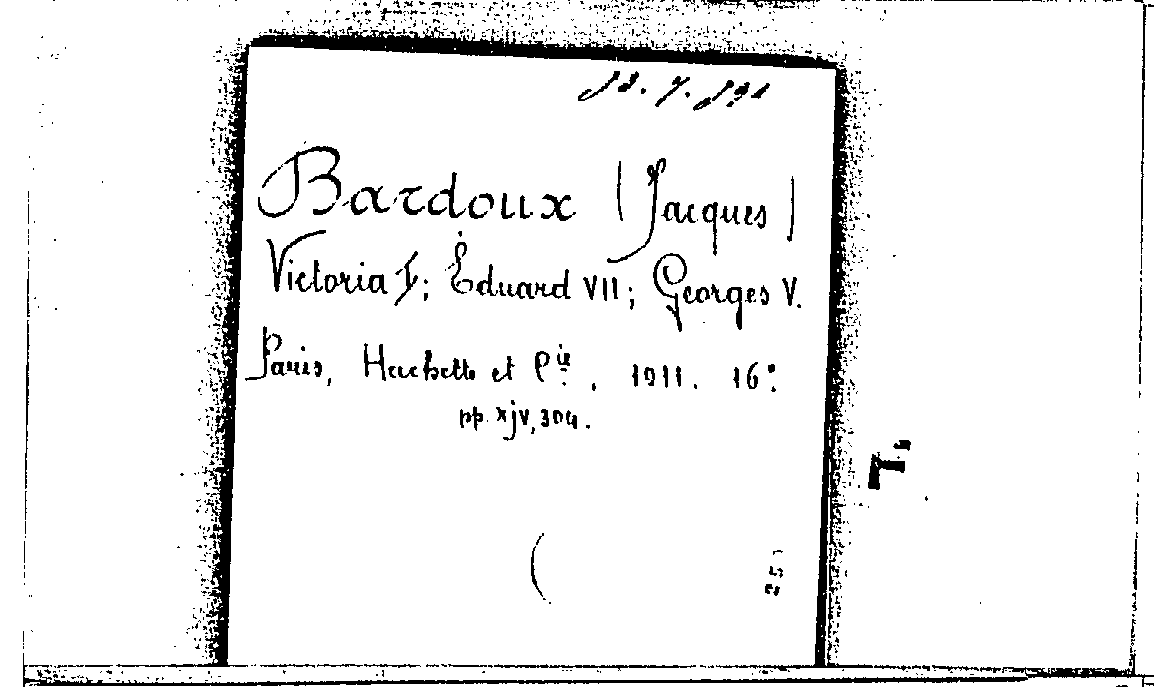 Bardoux (Jacques)
Victoria I; Éduard VII; Georges V.
Paris, Hachette et C.ie, 1911. 16°
pp. xjv, 304.